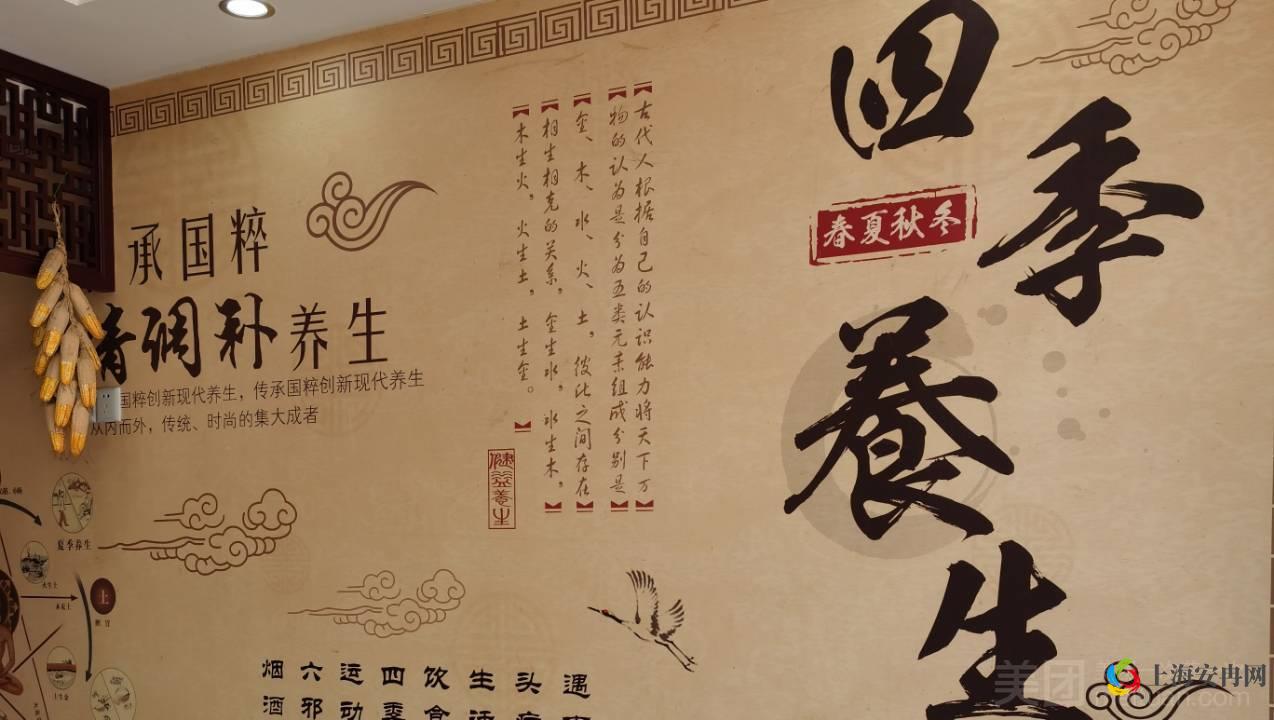 四季
養生
春夏秋冬
古代人根据自己的认识能力将天下万
物的认为是分为五类元素组成分别是
金、木、水、火、土。彼此之间存在
相生相克的关系，金生水，水生木，
木生火，火生土，土生金。
健益養生
承国粹
调补养生
国粹创新现代养生，传承国粹创新现代养生
从内而外，传统、时尚的集大成者
夏季养生
土
烟酒
六邪
运动
四季
饮食
生活
头
遇
美团
上海安冉网